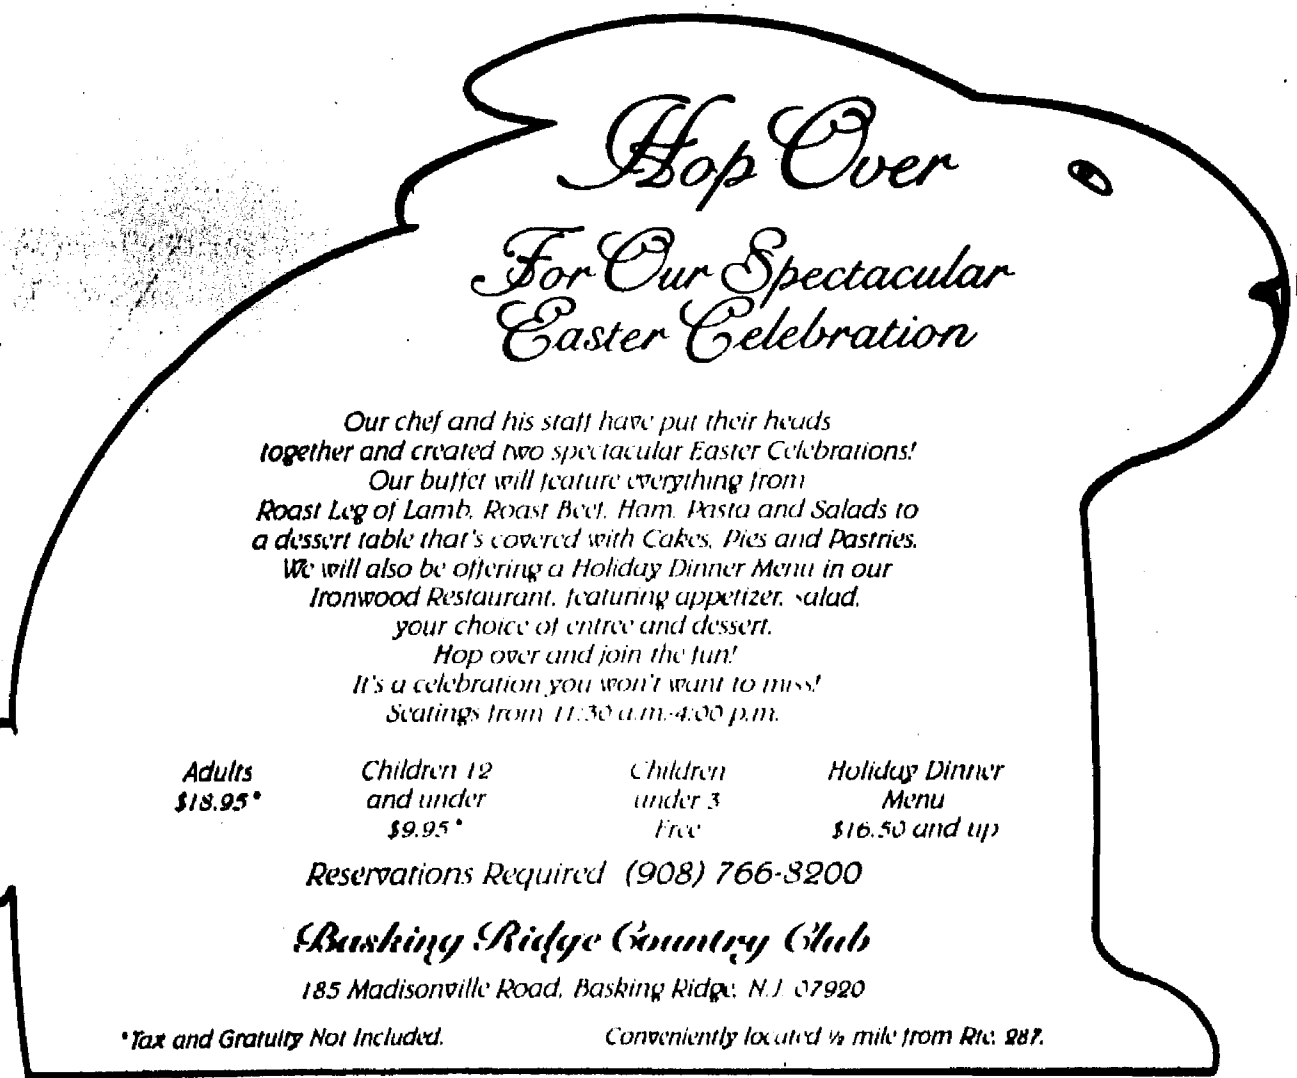 Hop Over
For Our Spectacular
Easter Celebration
Our chef and his staff have put their heads
together and created two spectacular Easter Celebrations!
Our buffet will feature everything from
Roast Leg of Lamb, Roast Beef, Ham, Pasta and Salads to
a dessert table that's covered with Cakes, Pies and Pastries.
We will also be offering a Holiday Dinner Menu in our
Ironwood Restaurant, featuring appetizer, salad,
your choice of entree and dessert.
Hop over and join the fun!
It's a celebration you won't want to miss!
Seatings from 11:30 a.m.-4:00 p.m.
Adults
$18.95*
Children 12
and under
$9.95*
Children
under 3
Free
Holiday Dinner
Menu
$16.50 and up
Reservations Required (908) 766-8200
Basking Ridge Country Club
185 Madisonville Road, Basking Ridge, N.J. 07920
*Tax and Gratuity Not Included.
Conveniently located ½ mile from Rte. 287.